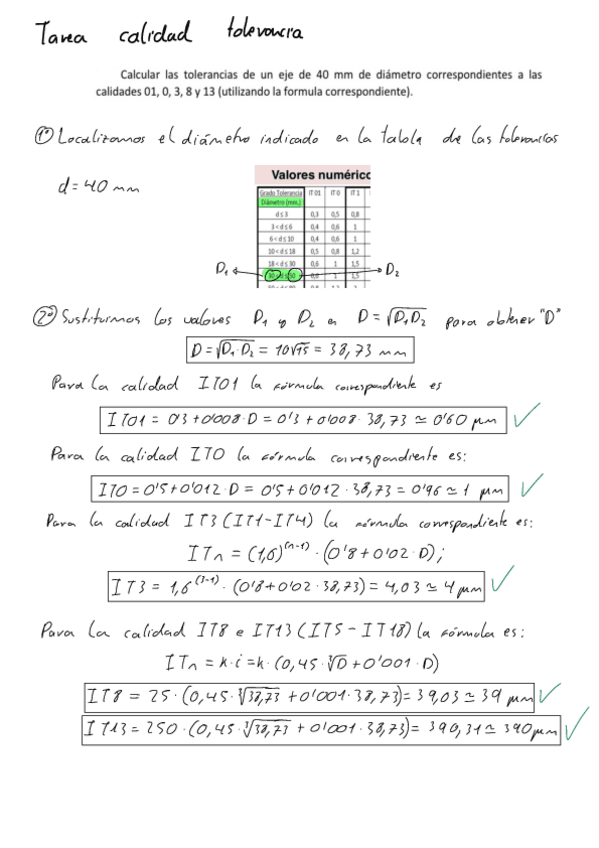 Tarea calidad tolerancia
Calcular las tolerancias de un eje de 40 mm de diámetro correspondientes a las
calidades 01, 0, 3, 8 y 13 (utilizando la formula correspondiente).
1º Localizamos el diámetro indicado en la tabla de las tolerancias
d = 40 mm
Valores numéric
Grado Tolerancia IT 01 IT 0 IT 1
Diámetro (mm.)
d ≤ 3 0,3 0,5 0,8
3 < d ≤ 6 0,4 0,6 1
6 < d ≤ 10 0,4 0,6 1
10 < d ≤ 18 0,5 0,8 1,2
18 < d ≤ 30 0,6 1 1,5
D₁ 30 < d ≤ 50 0,6 1 1,5 D₂
2º Sustituimos los valores D₁ y D₂ en D = √D₁D₂ para obtener "D"
D = √D₁·D₂ = 10√15 = 38,73 mm
Para la calidad IT01 la fórmula correspondiente es
IT01 = 0'3 + 0'008·D = 0'3 + 0'008·38,73 ≃ 0'60 μm ✓
Para la calidad IT0 la fórmula correspondiente es:
IT0 = 0'5 + 0'012·D = 0'5 + 0'012·38,73 = 0'96 ≃ 1 μm ✓
Para la calidad IT3 (IT1-IT4) la fórmula correspondiente es:
ITn = (1,6)⁽ⁿ⁻¹⁾·(0'8 + 0'02·D);
IT3 = 1,6⁽³⁻¹⁾·(0'8 + 0'02·38,73) = 4,03 ≃ 4 μm ✓
Para la calidad IT8 e IT13 (IT5 - IT18) la fórmula es:
ITn = k·i = k·(0,45·∛D + 0'001·D)
IT8 = 25·(0,45·∛38,73 + 0'001·38,73) = 39,03 ≃ 39 μm ✓
IT13 = 250·(0,45·∛38,73 + 0'001·38,73) = 390,31 ≃ 390 μm ✓